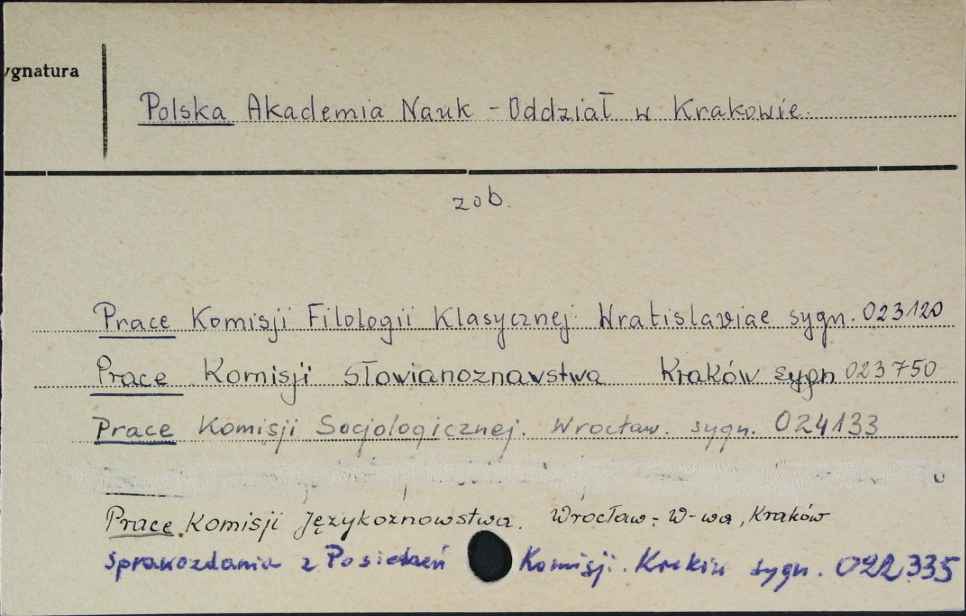 ygnatura
Polska Akademia Nauk - Oddział w Krakowie.
zob.
Prace Komisji Filologii Klasycznej Wratislaviae sygn. 023120
Prace Komisji Słowianoznawstwa Kraków sygn 023750
Prace Komisji Socjologicznej. Wrocław. sygn. 024133
Prace Komisji Językoznowstwa. Wrocław; W-wa, Kraków
Sprawozdania z Posiedzeń Komisji. Kraków sygn. 022335